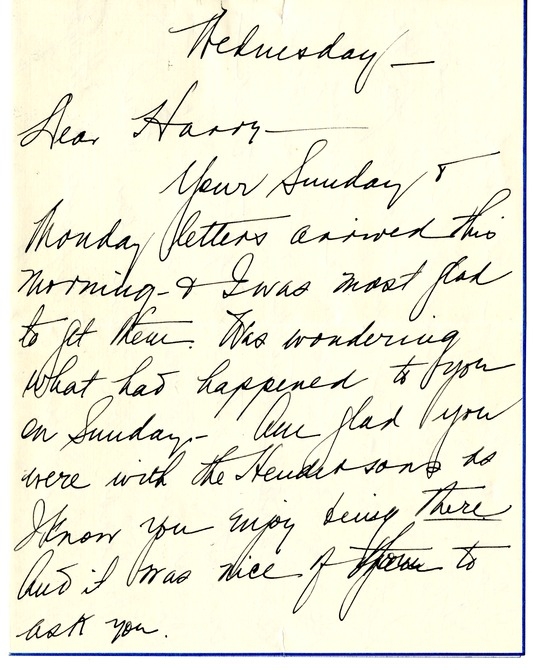 Wednesday —
Dear Harry —
Your Sunday &
Monday letters arrived this
morning - & I was most glad
to get them. Was wondering
what had happened to you
on Sunday. - Am glad you
were with the Hendersons as
I know you enjoy being there
And it was nice of them to
ask you.